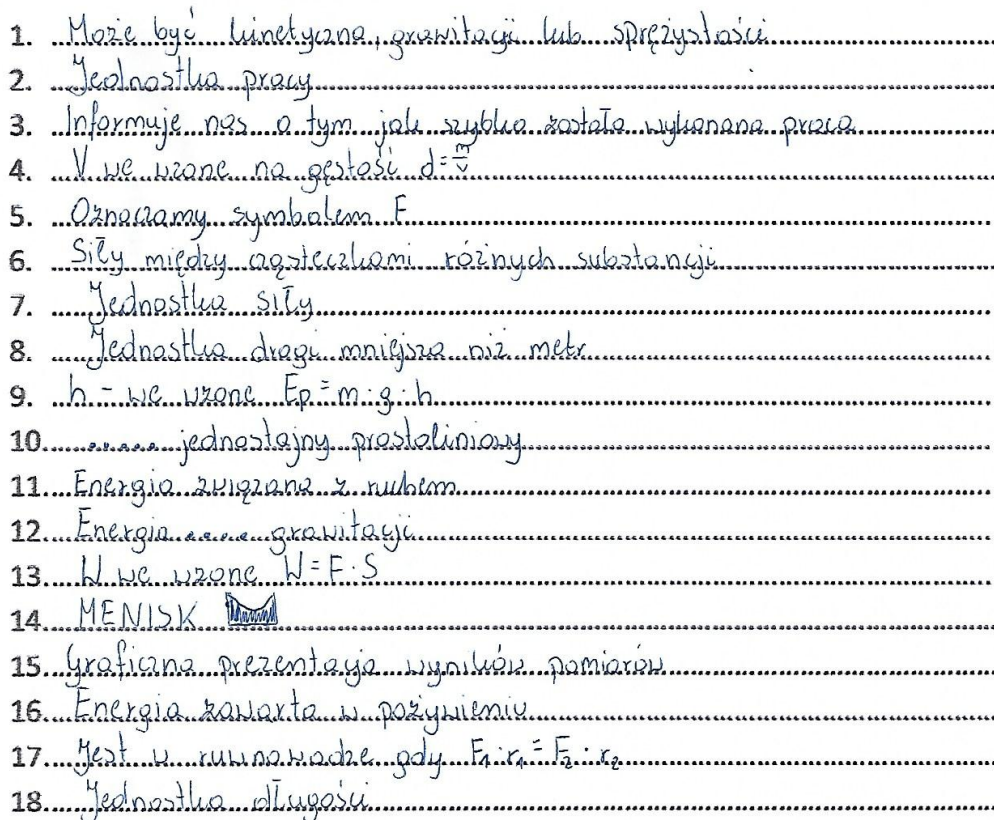 1. Może być kinetyczna, grawitacji lub sprężystości
2. Jednostka pracy
3. Informuje nas o tym jak szybko została wykonana praca
4. V we wzorze na gęstość d=m/v
5. Oznaczamy symbolem F
6. Siły między cząsteczkami różnych substancji
7. Jednostka siły
8. Jednostka drogi mniejsza niż metr
9. h - we wzorze Ep=m·g·h
10. ..... jednostajny prostoliniowy
11. Energia związana z ruchem
12. Energia ..... grawitacji
13. W we wzorze W=F·S
14. MENISK
15. Graficzna prezentacja wyników pomiarów
16. Energia zawarta w pożywieniu
17. Jest wruwnowadze gdy F₁·r₁=F₂·r₂
18. Jednostka długości